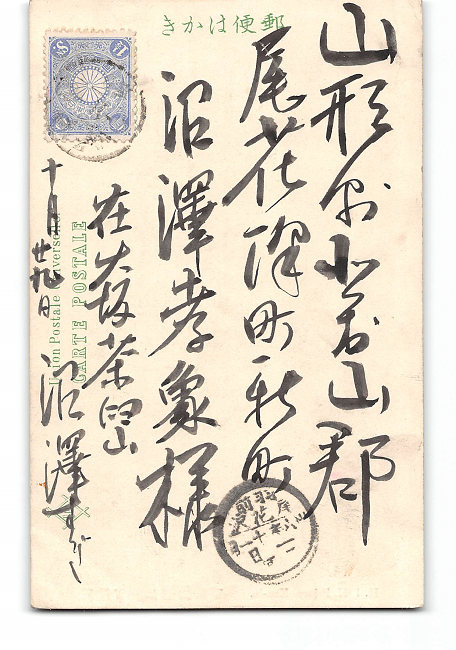 郵便はかき
山形縣北村山郡
尾花澤町新町
沼澤孝象様
在大坂茶臼山
十月廿九日
沼澤
Union Postale Universelle
CARTE POSTALE
羽前
尾花沢